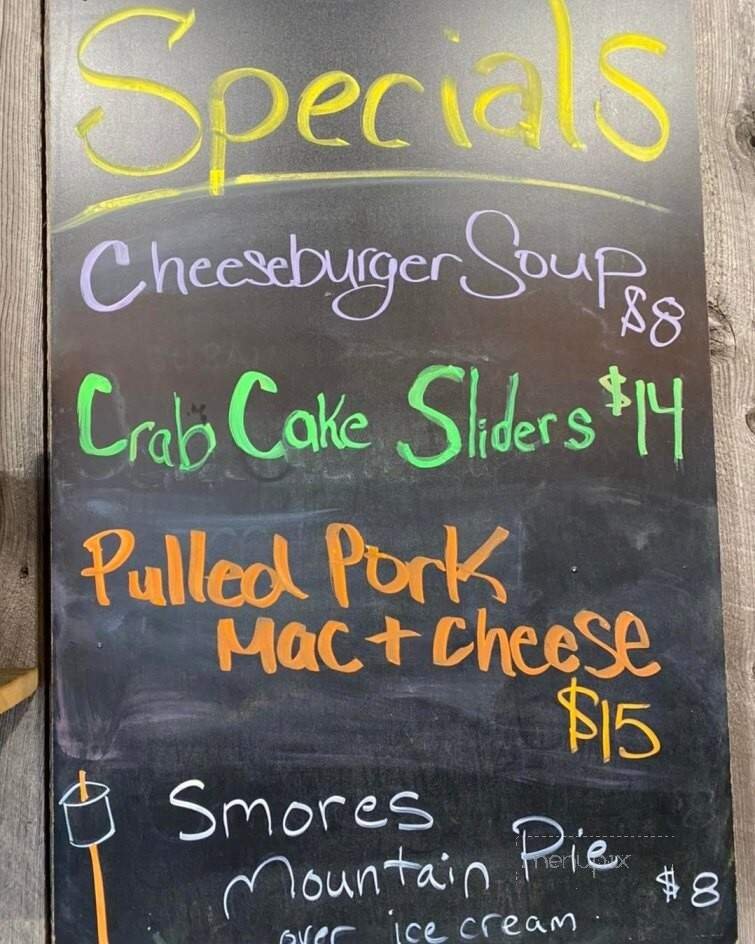 Specials
Cheeseburger Soup
$8
Crab Cake Sliders $14
Pulled Pork
Mac + Cheese
$15
Smores
Mountain Pie
$8
over ice cream
menupix